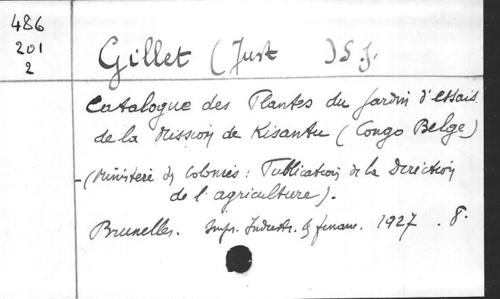 486
201
2
Gillet (Just ) S. J.
Catalogue des Plantes du Jardin d'essais
de la Mission de Kisantu (Congo Belge)
- (Ministère des Colonies: Publication de la Direction
de l'agriculture).
Bruxelles. Impr. Industr. & financ. 1927. 8°.